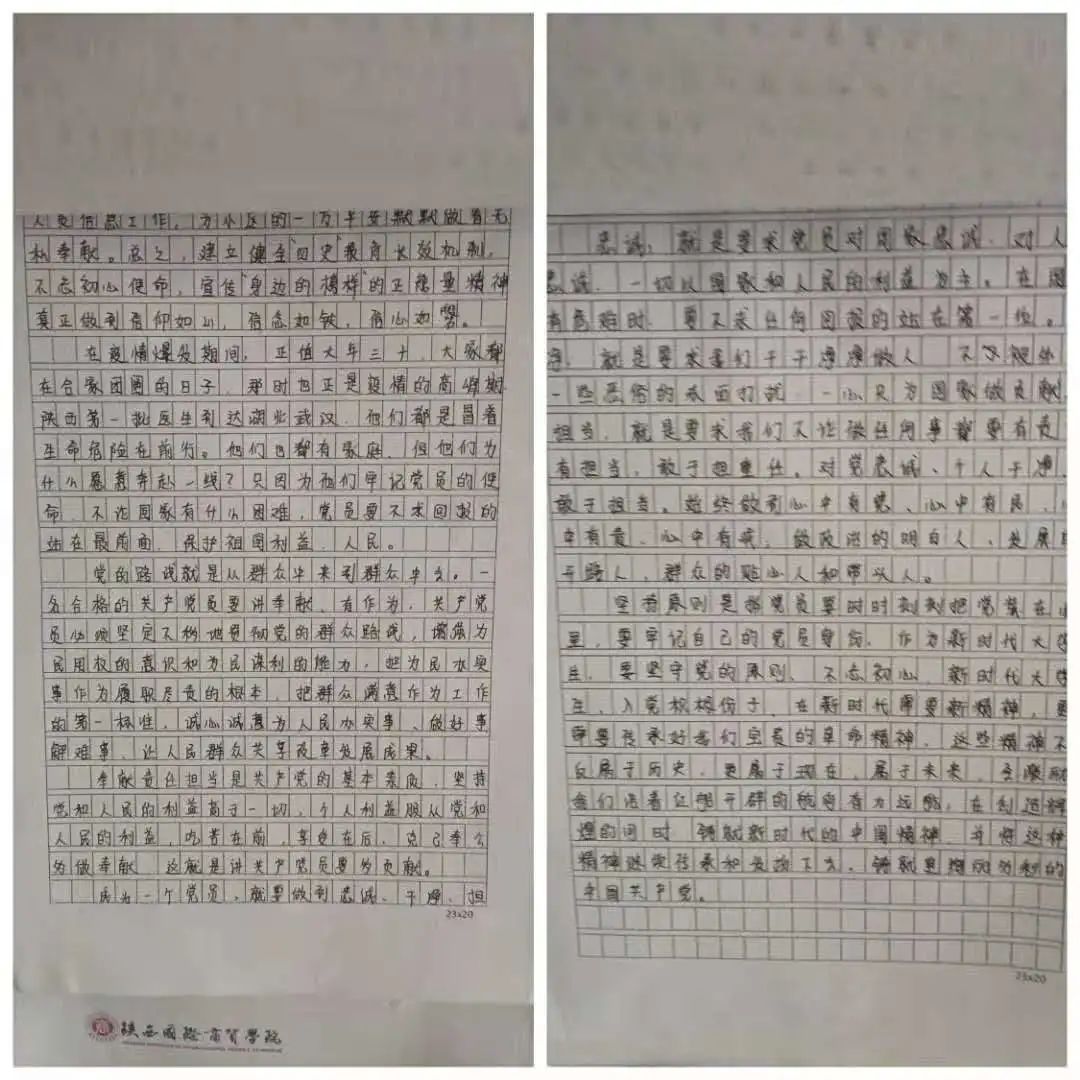 人员信息工作，为小区的一方平安默默做着无
私奉献。总之，建立健全"四史"教育长效机制，
不忘初心使命，宣传"身边的榜样"的正能量精神
真正做到信仰如山，信念如铁，信心如磐。
在疫情爆发期间，正值大年三十，大家都
在合家团圆的日子，那时也正是疫情的高峰期
陕西第一批医生到达湖北武汉，他们都是冒着
生命危险在前行。他们也都有家庭，但他们为
什么愿意奔赴一线？只因为他们牢记党员的使
命，不论国家有什么困难，党员要不求回报的
站在最前面，保护祖国利益、人民。
党的路线就是从群众中来到群众中去。一
名合格的共产党员要讲奉献、有作为，共产党
员必须坚定不移地贯彻党的群众路线，增强为
民用权的意识和为民谋利的能力，把为民办实
事作为履职尽责的根本，把群众满意作为工作
的第一标准，诚心诚意为人民办实事、做好事
解难事、让人民群众共享改革发展成果。
奉献责任担当是共产党的基本素质，坚持
党和人民的利益高于一切，个人利益服从党和
人民的利益，吃苦在前，享受在后，克己奉公
多做奉献，这就是讲共产党员要多贡献。
成为一个党员，就要做到忠诚、干净、担
23x20
陕西国际商贸学院
忠诚，就是要求党员对国家忠诚、对人
忠诚，一切以国家和人民的利益为主。在国
有危难时，要不求任何回报的站在第一位。
净，就是要求我们干干净净做人，不
一些恶俗的表面打扰，一心只为国家做贡献
担当，就是要求我们不论做任何事都要有责
有担当，敢于担重任。对党忠诚、个人干净、
敢于担当。始终做到心中有党、心中有民、心
中有责、心中有戒，做政治的明白人、发展的
开路人、群众的贴心人和带头人。
坚持原则是指党员要时时刻刻把党装在心
里，要牢记自己的党员身份，作为新时代大学
生，要坚守党的原则、不忘初心，新时代大学
生、入党积极份子，在新时代需要新精神，更
需要传承好我们党员的革命精神，这些精神不
仅属于历史，更属于现在，属于未来，
我们沿着 的航向有为远航，在创造辉
煌的同时，铸就新时代的中国精神，并将这种
精神继续传承和发扬下去，铸就更 的
中国共产党。
23x20